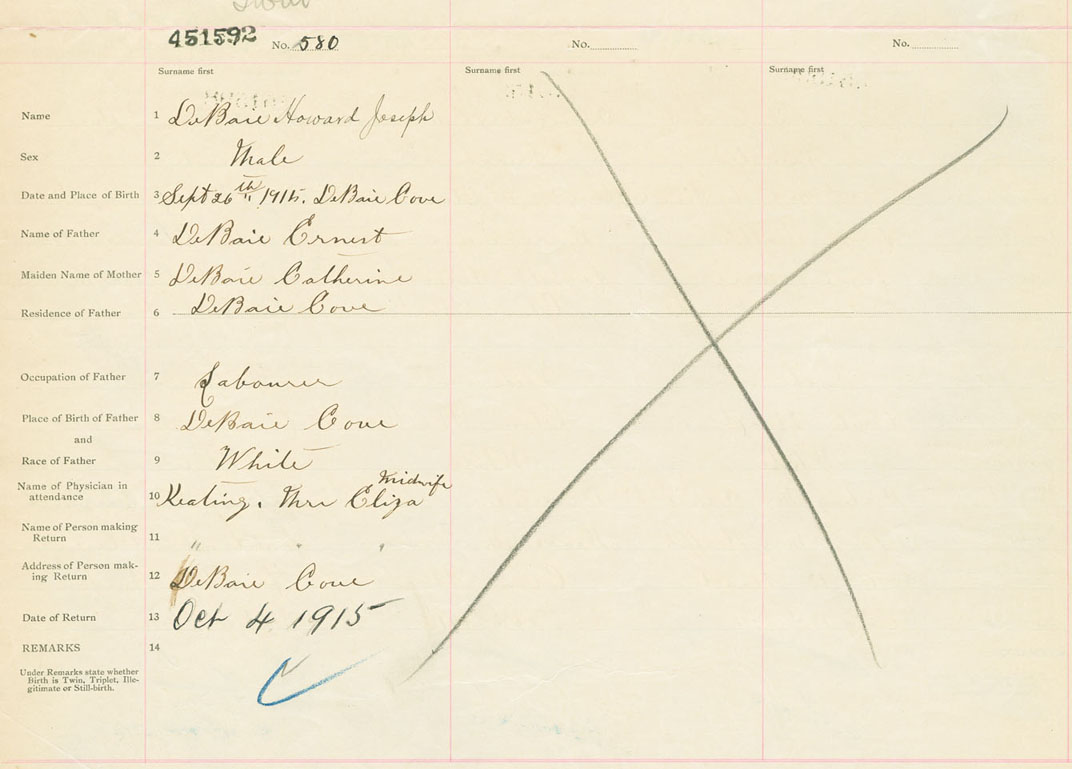 451592 No. 580 No. No.
Surname first Surname first Surname first
Name 1 DeBaie Howard Joseph
Sex 2 Male
Date and Place of Birth 3 Sept 26th 1915. DeBaie Cove
Name of Father 4 DeBaie Ernest
Maiden Name of Mother 5 DeBaie Catherine
Residence of Father 6 DeBaie Cove
Occupation of Father 7 Labourer
Place of Birth of Father 8 DeBaie Cove
and
Race of Father 9 White
Name of Physician in
attendance 10 Keating. Mrs Eliza Midwife
Name of Person making
Return 11 " " "
Address of Person mak-
ing Return 12 DeBaie Cove
Date of Return 13 Oct 4 1915
REMARKS 14
Under Remarks state whether
Birth is Twin, Triplet, Ille-
gitimate or Still-birth.